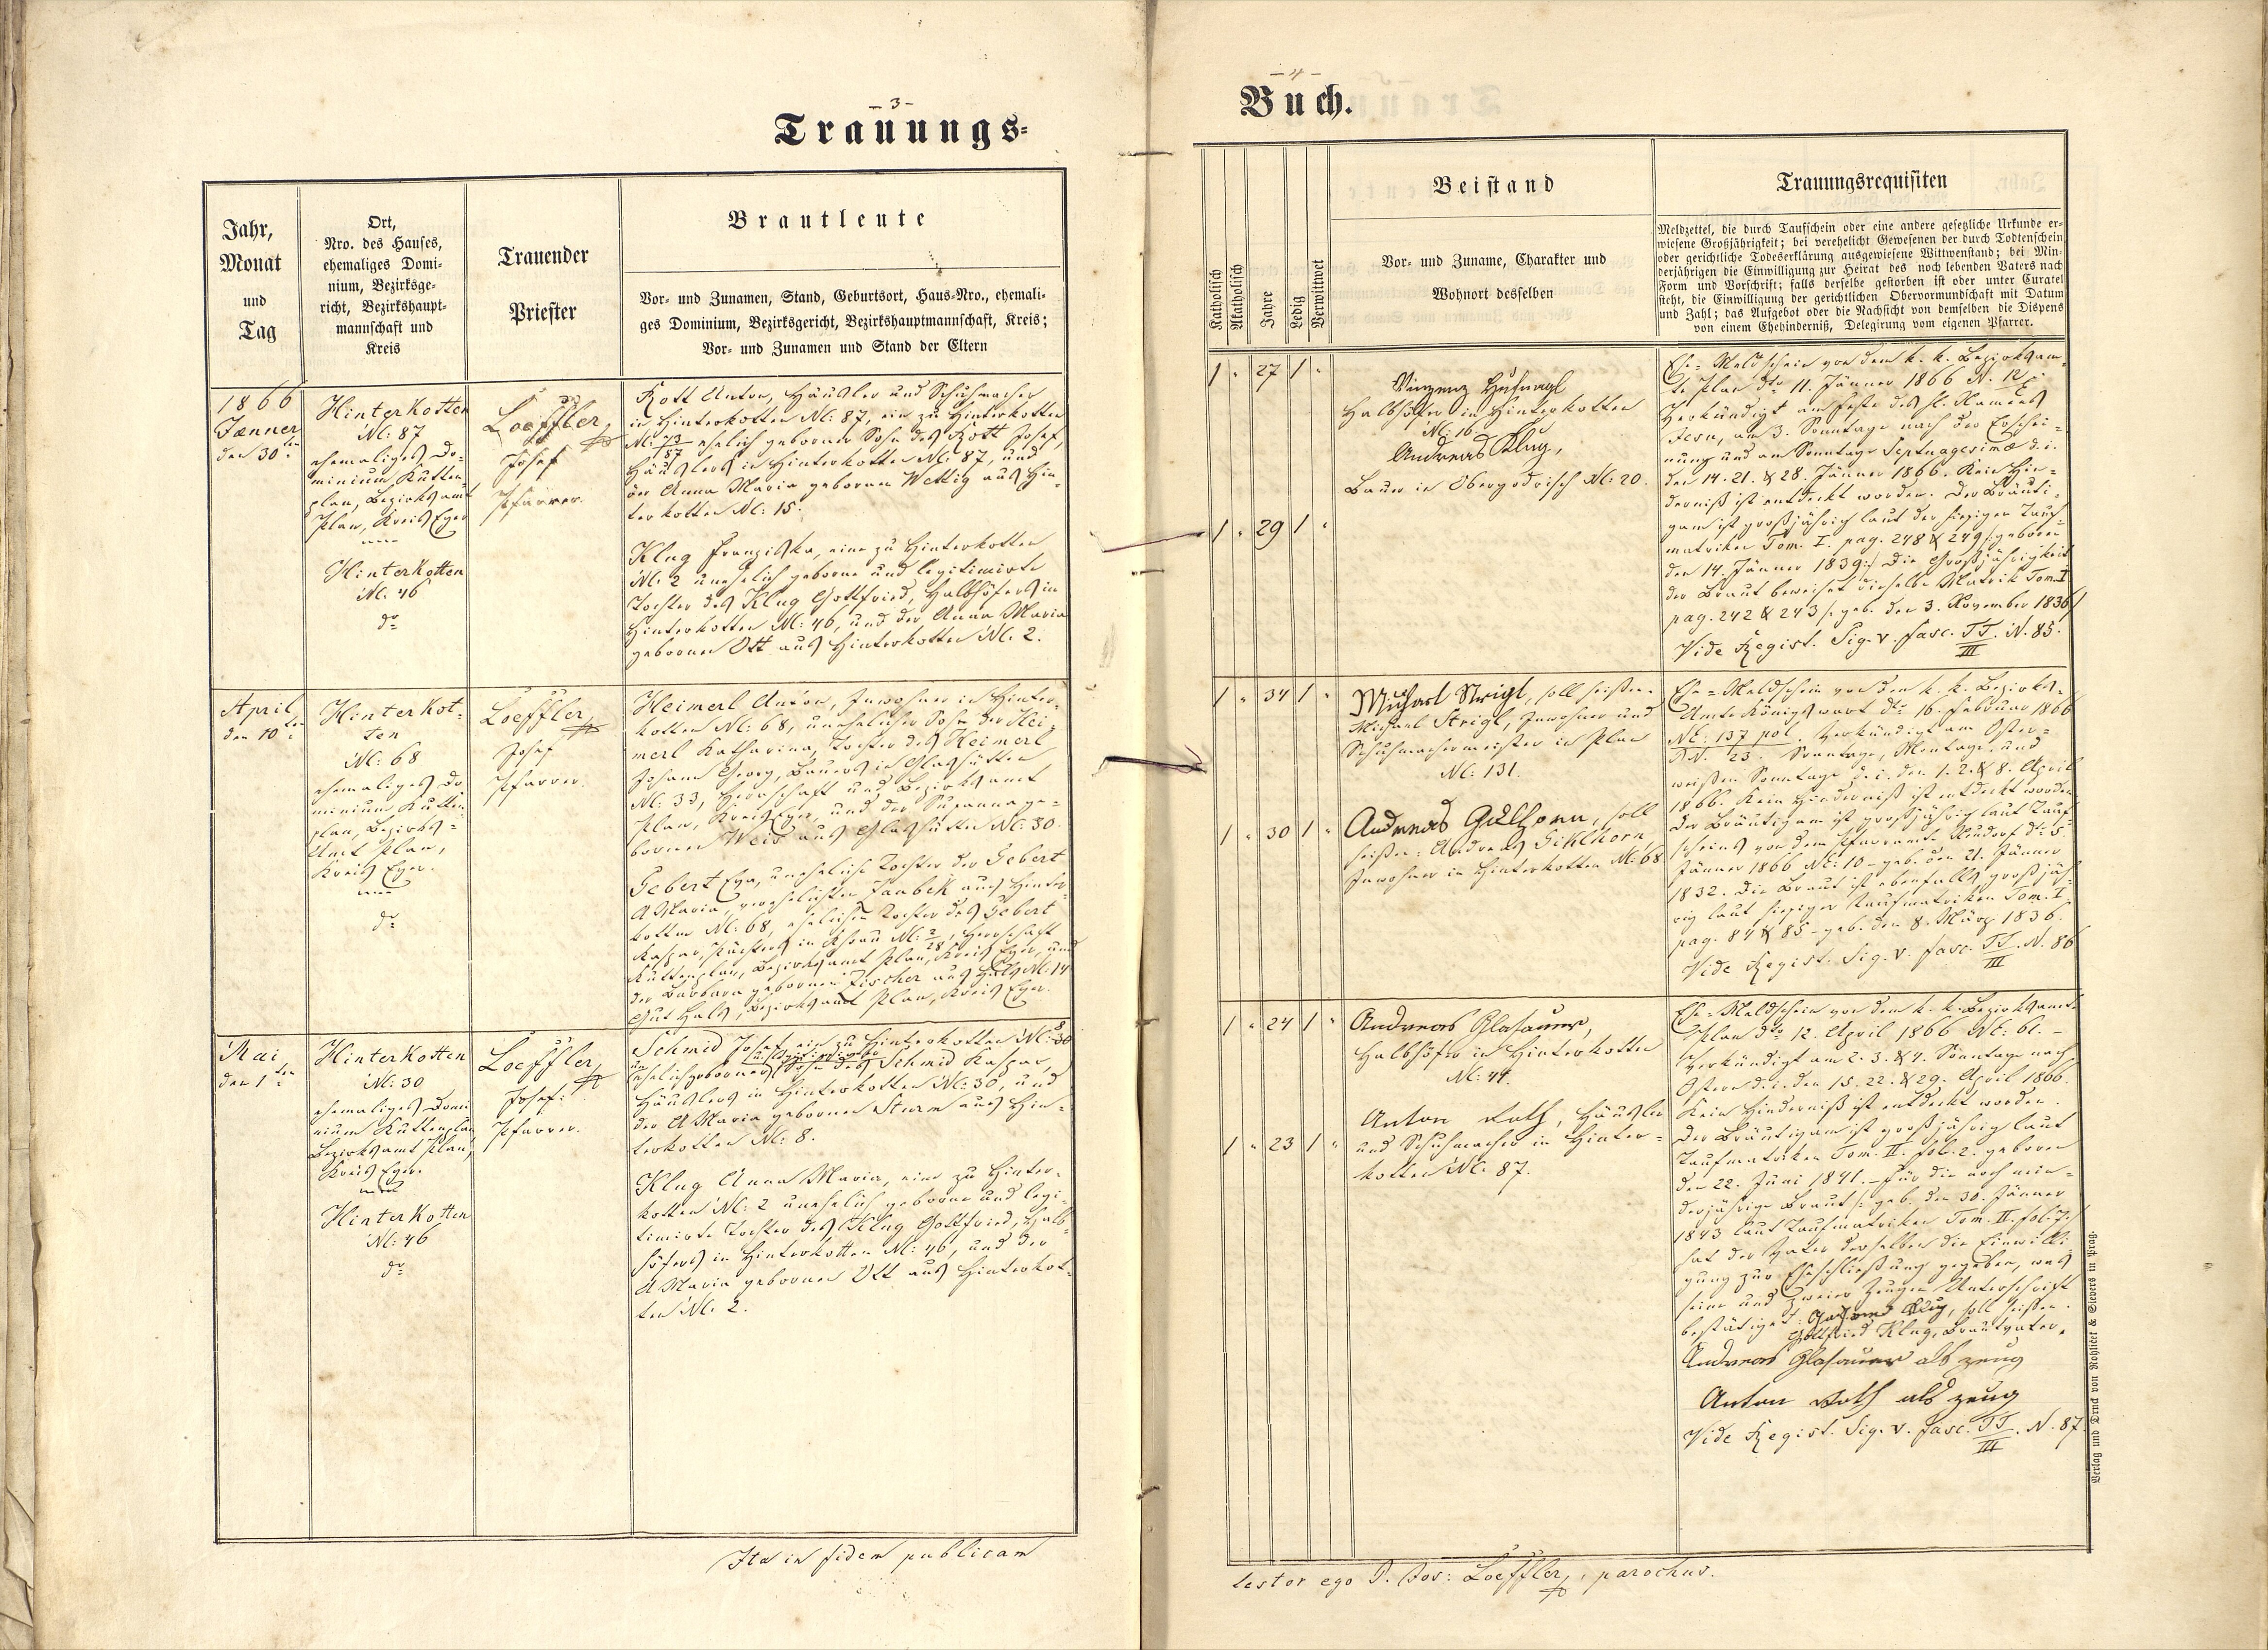 – 3 –
Trauungs-
Jahr,
Monat
und
Tag
Ort,
Nro. des Hauses,
ehemaliges Domi-
nium, Bezirksge-
richt, Bezirkshaupt-
mannschaft und
Kreis
Trauender
Priester
Brautleute
Vor- und Zunamen, Stand, Geburtsort, Haus-Nro., ehemali-
ges Dominium, Bezirksgericht, Bezirkshauptmannschaft, Kreis;
Vor- und Zunamen und Stand der Eltern
1866
Jænner
den 30ten
Hinterkotten
N: 87
ehemaliges Do-
minium Kutten-
plan, Bezirksamt
Plan, Kreis Eger
Hinterkotten
N: 46
do
Loeffler,
Josef
Pfarrer.
Rott Anton, Häusler und Schuhmacher
in Hinterkotten N: 87, ein zu Hinterkotten
N: 73/87 ehelich geborner Sohn des Rott Josef,
Häuslers in Hinterkotten N: 87, und
der Anna Maria gebornen Wettig aus Hin-
terkotten N: 15.
Klug Franziska, eine zu Hinterkotten
N: 2 unehelich geborne und legitimirte
Tochter des Klug Gottfried, Halbhöfers in
Hinterkotten N: 46, und der Anna Maria
gebornen Ott aus Hinterkotten N: 2.
April
den 10ten
Hinterkot-
ten
N: 68
ehemaliges Do
minium Kutten
plan, Bezirks-
Amt Plan,
Kreis Eger.
do
Loeffler,
Josef
Pfarrer.
Heimerl Anton, Inwohner in Hinter-
kotten N: 68, unehelicher Sohn der Hei-
merl Katharina, Tochter des Heimerl
Johann Georg, Bauers in Glashütten
N: 33, Herrschaft und Bezirksamt
Plan, Kreis Eger, und der Susanna ge-
bornen Weis aus Glashütten N: 30.
Gebert Eva, uneheliche Tochter der Gebert
A Maria, verehelichten Jambek aus Hinter-
kotten N: 68, ehelichen Tochter des Gebert
Kaspar, Pächters in N: 2/28, Herrschaft
Kuttenplan, Bezirksamt Plan, Kreis Eger, und
der Barbara gebornen Fischer aus Hals N: 14
Gut Hals, Bezirksamt Plan, Kreis Eger.
Mai
den 1ten
Hinterkotten
N: 30
ehemaliges Domi
nium Kuttenplan
Bezirksamt Plan,
Kreis Eger.
Hinterkotten
N: 46
do
Loeffler,
Josef:
Pfarrer.
Schmid Josef, ein zu Hinterkotten N: 30
un
ehelich geborner Sohn des Schmid Kaspar,
Häuslers in Hinterkotten N: 30, und
der A Maria gebornen Sturm aus Hin-
terkotten N: 8.
Klug Anna Maria, eine zu Hinter-
kotten N: 2 unehelich geborne und legi-
timirte Tochter des Klug Gottfried, Halb-
höfers in Hinterkotten N: 46, und der
A Maria gebornen Ott aus Hinterkot-
ten N: 2.
Ita in fidem publicam
– 4 –
Buch.
Katholisch
Akatholisch
Jahre
Ledig
Verwittwet
Beistand
Vor- und Zuname, Charakter und
Wohnort desselben
Trauungsrequisiten
Meldzettel, die durch Taufschein oder eine andere gesetzliche Urkunde er-
wiesene Großjährigkeit; bei verehelicht Gewesenen der durch Todtenschein
oder gerichtliche Todeserklärung ausgewiesene Wittwenstand; bei Min-
derjährigen die Einwilligung zur Heirat des noch lebenden Vaters nach
Form und Vorschrift; falls derselbe gestorben ist oder unter Curatel
steht, die Einwilligung der gerichtlichen Obervormundschaft mit Datum
und Zahl; das Aufgebot oder die Nachsicht von demselben die Dispens
von einem Ehehinderniß, Delegirung vom eigenen Pfarrer.
1 " 27 1 "
1 " 29 1 "
Vinzenz Hufnagl
Halbhöfer in Hinterkotten
N: 16.
Andreas Klug,
Bauer in Obergodrisch N: 20.
Ehe-Meldschein von dem k. k. Bezirksam-
te Plan dto 11. Jänner 1866 N. 12
Verkündigt am Feste des hl. Namens
Jesu, am 3. Sonntage nach der Erschei-
nung und am Sonntage Septuagesimæ d. i.
den 14. 21. & 28. Jänner 1866. Kein Hin-
derniß ist entdeckt worden. Der Bräuti-
gam ist großjährig laut der hiesigen Tauf-
matriken Tom. I. pag. 248 & 249 /: geboren
den 14. Jänner 1839 :/ Die Großjährigkeit
der Braut beweiset dieselbe Matrik Tom. I
pag. 242 & 243 /: geb. den 3. November 1836 :/
Vide Regist. Sig. v. fasc. TT/III. N. 85.
1 " 34 1 "
1 " 30 1 "
Michael Strigl, soll heißen:
Michael Strigl, Inwohner und
Schuhmachermeister in Plan
N: 131.
Andreas Giklhorn, soll
heißen: Andreas Giklhorn
Inwohner in Hinterkotten N: 68
Ehe-Meldschein von dem k. k. Bezirks-
Amte Königswart dto 16. Februar 1866
N: 137 pol. Verkündigt am Oster-
Sonntage, Montage und
weißen Sonntage d. i. den 1. 2. & 8. April
1866. Kein Hinderniß ist entdeckt worden
Der Bräutigam ist großjährig laut Tauf-
scheins von dem Pfarramte Neudorf dto 5.
Jänner 1866 N: 10 – geb. den 21. Jänner
1832. Die Braut ist ebenfalls großjäh-
rig laut hiesiger Taufmatriken Tom. I.
pag. 84 & 85 – geb. den 8. März 1836.
Vide Regist. Sig. v. fasc. TT/III. N. 86
1 " 24 1 "
1 " 23 1 "
Andreas Glasauer,
Halbhöfer in Hinterkotten
N: 44.
Anton Roth, Häusler
und Schuhmacher in Hinter-
kotten N: 87.
Ehe-Meldschein von dem k. k. Bezirksamte
Plan dto 12. April 1866 N: 61. –
Verkündigt am 2. 3. & 4. Sonntage nach
Ostern d. i. den 15. 22. & 29. April 1866.
Kein Hinderniß ist entdeckt worden.
Der Bräutigam ist großjährig laut
Taufmatriken Tom. II. fol. 2. geboren
den 22. Juni 1841. – Für die noch min-
derjährige Braut /: geb. den 30. Jänner
1843 laut Taufmatriken Tom. II. fol. 7:/
hat der Vater derselben die Einwilli-
gung zur Eheschließung gegeben, was
seine und zweier Zeugen Unterschrift
bestätiget: Klug, soll heißen:
Gottfried Klug, Brautvater.
Andreas Glasauer als Zeug
Anton Roth als Zeug
Vide Regist. Sig. v. fasc. TT/III. N. 87.
Verlag und Druck von Rohliček & Sievers in Prag.
testor ego P. Jos: Loeffler, parochus.